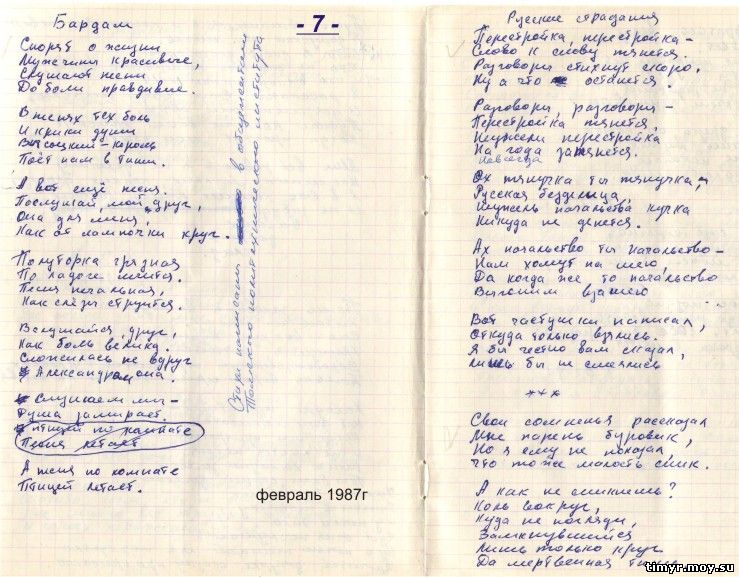 - 7 -
Бардам
Спорят о жизни
Мужчины красивые,
Слушают песни
До боли правдивые.
В песнях тех боль
И крики души
Высоцкий - король
Поёт нам в тиши.
А вот ещё песня.
Послушай, мой друг,
Она для меня,
Как от лампочки круг.
Полуторка грязная
По Ладоге мчится.
Песня печальная,
Как слёзы струится.
Вслушайся, друг,
Как боль велика.
Сложилась не вдруг
Александром она.
Слушаем мы -
Душа замирает.
птицей по комнате
Песня летает
А песня по комнате
Птицей летает.
Стихи написаны в общежитии
Томского политехнического института
февраль 1987г
Русские страдания
Перестройка, перестройка -
Слово к слову тянется.
Разговоры стихнут скоро.
Ну а что останется.
Разговоры, разговоры -
Перестройка тянется,
Неужели перестройка
На года затянется.
навсегда
Эх тянучка ты тянучка,
Русская безделица,
Неужель начальства кучка
Никуда не денется.
Ах начальство ты начальство -
Нам хомут на шею,
Да когда же, то начальство
Выгоним взашею
Вот частушки написал,
Откуда только взялись.
Я бы честно вам сказал,
Лишь бы не смеялись
***
Свои сомненья рассказал
Мне парень буровик,
Но я ему не показал,
Что тоже малость сник.
А как не сникнешь?
Коль вокруг,
Куда не погляди,
Замкнувшийся
Лишь только круг
Да мертвенная
timyr.moy.su